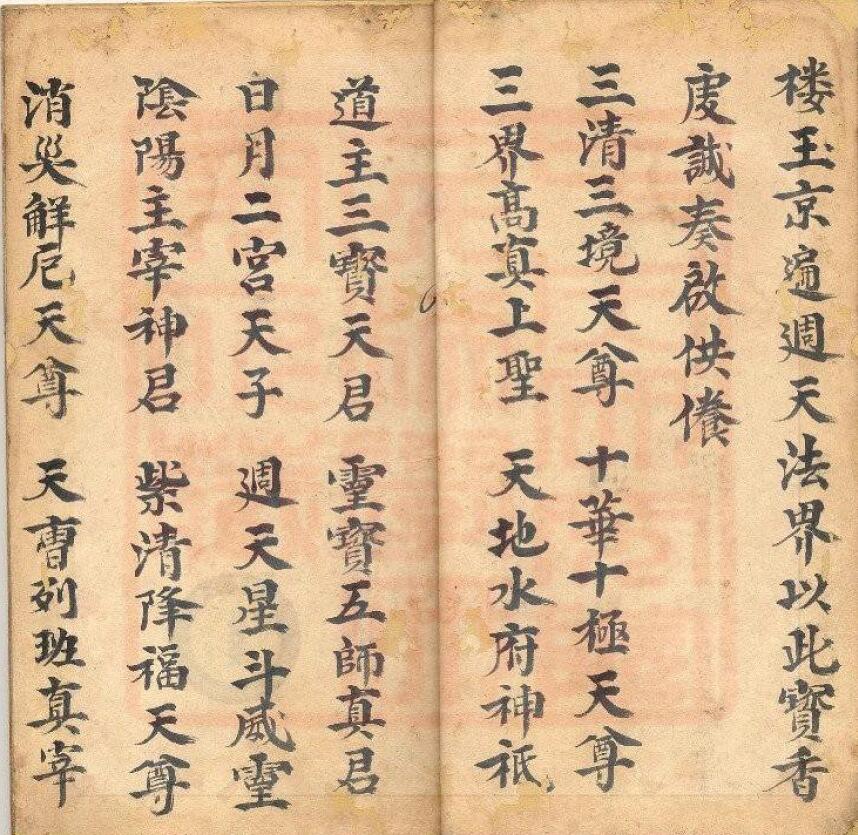 楼玉京遍週天法界以此寳香
虔誠奏啟供養
三清三境天尊 十華十極天尊
三界髙真上聖 天地水府神祇
道主三寳天君 靈寳五師真君
日月二宮天子 週天星斗威靈
陰陽主宰神君 紫清降福天尊
消災解厄天尊 天曹列班真宰